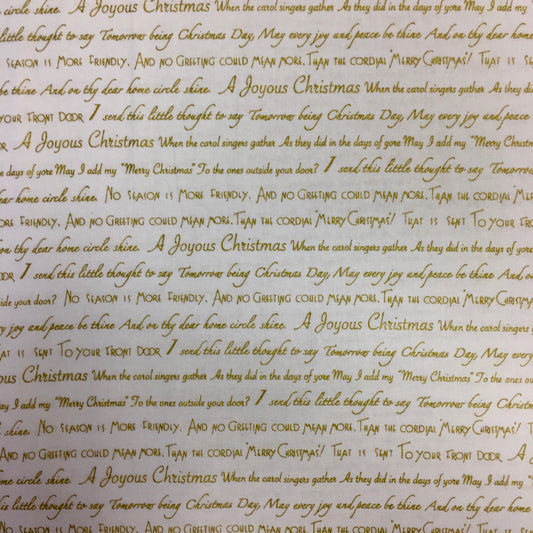 circle shine. A Joyous Christmas When the carol singers gather As they did in the days of yore May I add my
little thought to say Tomorrow being Christmas Day, May every joy and peace be thine And on thy dear home
Season is More Friendly, And no Greeting could mean more, Than the cordial "Merry Christmas"! That is sen
be thine And on thy dear home circle shine. A Joyous Christmas When the carol singers gather As they did
to your front door I send this little thought to say Tomorrow being Christmas Day, May every joy and peace
A Joyous Christmas When the carol singers gather As they did in the days of yore May I add my "Merry Christm
days of yore May I add my "Merry Christmas" To the ones outside your door? I send this little thought to say Tomorrow
dear home circle shine. No Season is More Friendly, And no Greeting could mean more, Than the cordial "Me
ore Friendly, And no Greeting could mean more, Than the cordial "Merry Christmas"! That is sent To your fro
on thy dear home circle shine. A Joyous Christmas When the carol singers gather As they did in the days of yore
I send this little thought to say Tomorrow being Christmas Day, May every joy and peace be thine And on
side your door? No Season is More Friendly, And no Greeting could mean more, Than the cordial "Merry Christma
y joy and peace be thine And on thy dear home circle shine. A Joyous Christmas When the carol singers g
at is sent To your front door I send this little thought to say Tomorrow being Christmas Day, May every
ous Christmas When the carol singers gather As they did in the days of yore May I add my "Merry Christmas" To the ones
ay I add my "Merry Christmas" To the ones outside your door? I send this little thought to say Tomorrow being Christm
shine. No Season is More Friendly, And no Greeting could mean more, Than the cordial "Merry Christmas"! That i
And no Greeting could mean more, Than the cordial "Merry Christmas"! That is sent To your front door A J
me circle shine. A Joyous Christmas When the carol singers gather As they did in the days of yore May I add my "
this little thought to say Tomorrow being Christmas Day, May every joy and peace be thine And on thy dear ho
Season is More Friendly, And no Greeting could mean more, Than the cordial "Merry Christmas"! That is